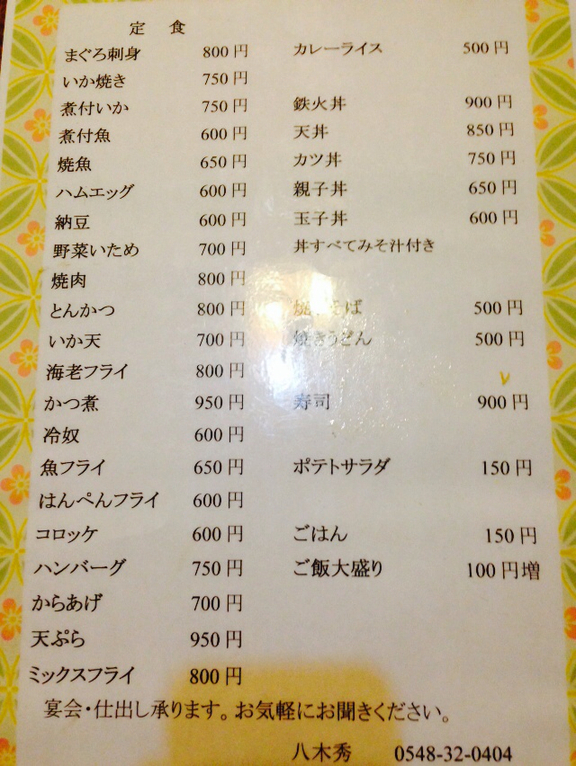 定食
まぐろ刺身 800円 カレーライス 500円
いか焼き 750円
煮付いか 750円 鉄火丼 900円
煮付魚 600円 天丼 850円
焼魚 650円 カツ丼 750円
ハムエッグ 600円 親子丼 650円
納豆 600円 玉子丼 600円
野菜いため 700円 丼すべてみそ汁付き
焼肉 800円
とんかつ 800円 焼きそば 500円
いか天 700円 焼きうどん 500円
海老フライ 800円
かつ煮 950円 寿司 900円
冷奴 600円
魚フライ 650円 ポテトサラダ 150円
はんぺんフライ 600円
コロッケ 600円 ごはん 150円
ハンバーグ 750円 ご飯大盛り 100円増
からあげ 700円
天ぷら 950円
ミックスフライ 800円
宴会・仕出し承ります。お気軽にお聞きください。
八木秀 0548-32-0404